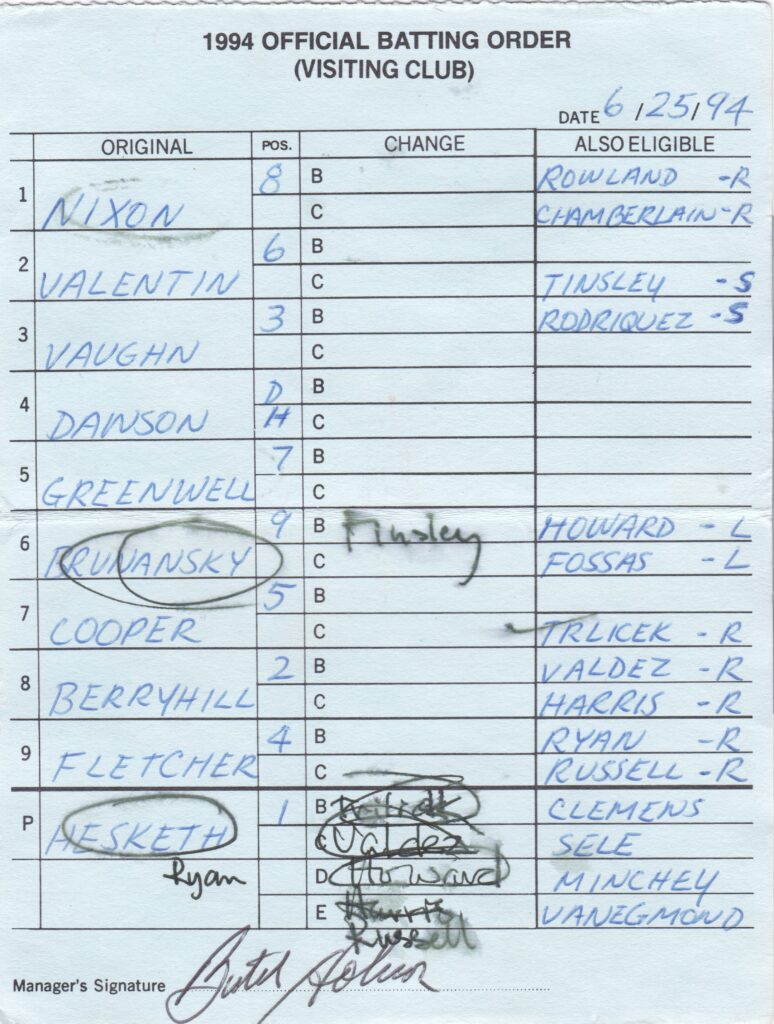 1994 OFFICIAL BATTING ORDER
(VISITING CLUB)
DATE 6/25/94
ORIGINAL POS. CHANGE ALSO ELIGIBLE
1 NIXON 8 B ROWLAND -R
C CHAMBERLAIN -R
2 VALENTIN 6 B
C TINSLEY -S
3 VAUGHN 3 B RODRIQUEZ -S
C
4 DAWSON DH B
C
5 GREENWELL 7 B
C
6 BRUNANSKY 9 B Tinsley HOWARD - L
C FOSSAS - L
7 COOPER 5 B
C TRLICEK - R
8 BERRYHILL 2 B VALDEZ - R
C HARRIS - R
9 FLETCHER 4 B RYAN - R
C RUSSELL - R
P HESKETH 1 B Trlicek CLEMENS
C Valdez SELE
Ryan D Howard MINCHEY
E Harris VANEGMOND
Russell
Manager's Signature Butch Hobson